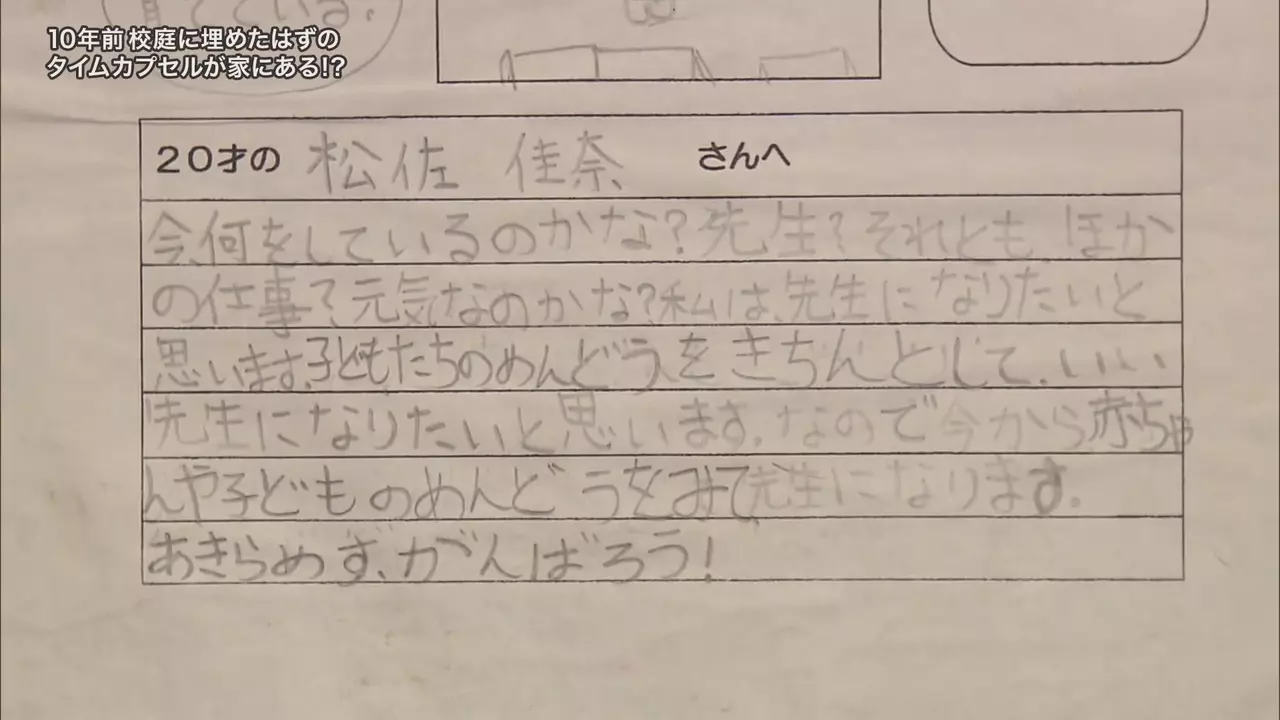 育てている。
10年前 校庭に埋めたはずの
タイムカプセルが家にある!?
20才の 松佐 佳奈 さんへ
今、何をしているのかな?先生?それとも、ほか
の仕事?元気なのかな?私は、先生になりたいと
思います。子どもたちのめんどうをきちんとして、いい
先生になりたいと思います。なので今から赤ちゃ
んや子どものめんどうをみて先生になります。
あきらめず、がんばろう!